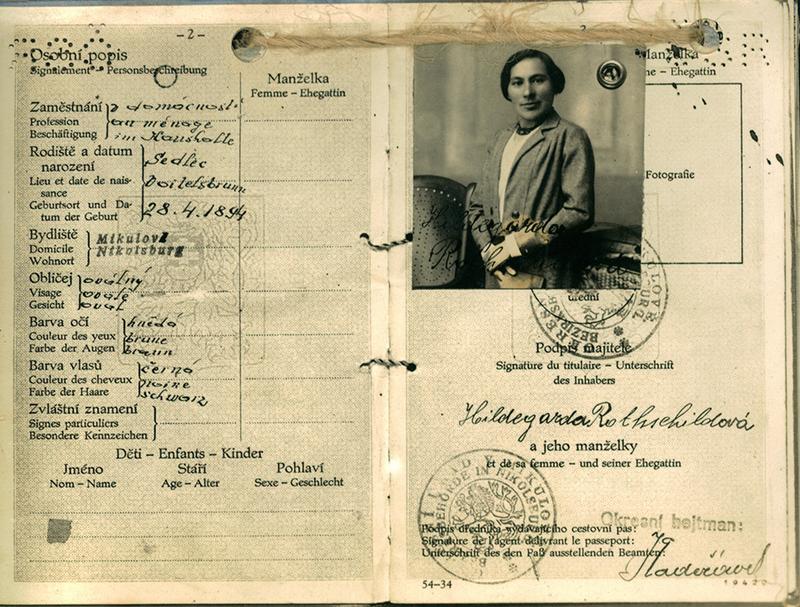 -2-
Osobní popis
Signalement - Personsbeschreibung
Manželka
Femme - Ehegattin
Zaměstnání
Profession
Beschäftigung
v domácnosti
au ménage
im Haushalte
Rodiště a datum
narození
Lieu et date de nais-
sance
Geburtsort und Da-
tum der Geburt
Sedlec
Voitelsbrunn
28.4.1894
Bydliště
Domicile
Wohnort
Mikulov
Nikolsburg
Obličej
Visage
Gesicht
oválný
ovale
oval
Barva očí
Couleur des yeux
Farbe der Augen
hnědá
brune
braun
Barva vlasů
Couleur des cheveux
Farbe der Haare
černá
noire
schwarz
Zvláštní znamení
Signes particuliers
Besondere Kennzeichen
Děti - Enfants - Kinder
Jméno Stáří Pohlaví
Nom - Name Age - Alter Sexe - Geschlecht
Manželka
me - Ehegattin
Fotografie
Hildegarda
úřední
Podpis majitele
Signature du titulaire - Unterschrift
des Inhabers
Hildegarda Rothschildová
a jeho manželky
et de sa femme - und seiner Ehegattin
Okresní hejtman:
Podpis úředníka vydávajícího cestovní pas:
Signature de l'agent délivrant le passeport:
Unterschrift des den Paß ausstellenden Beamten:
54-34